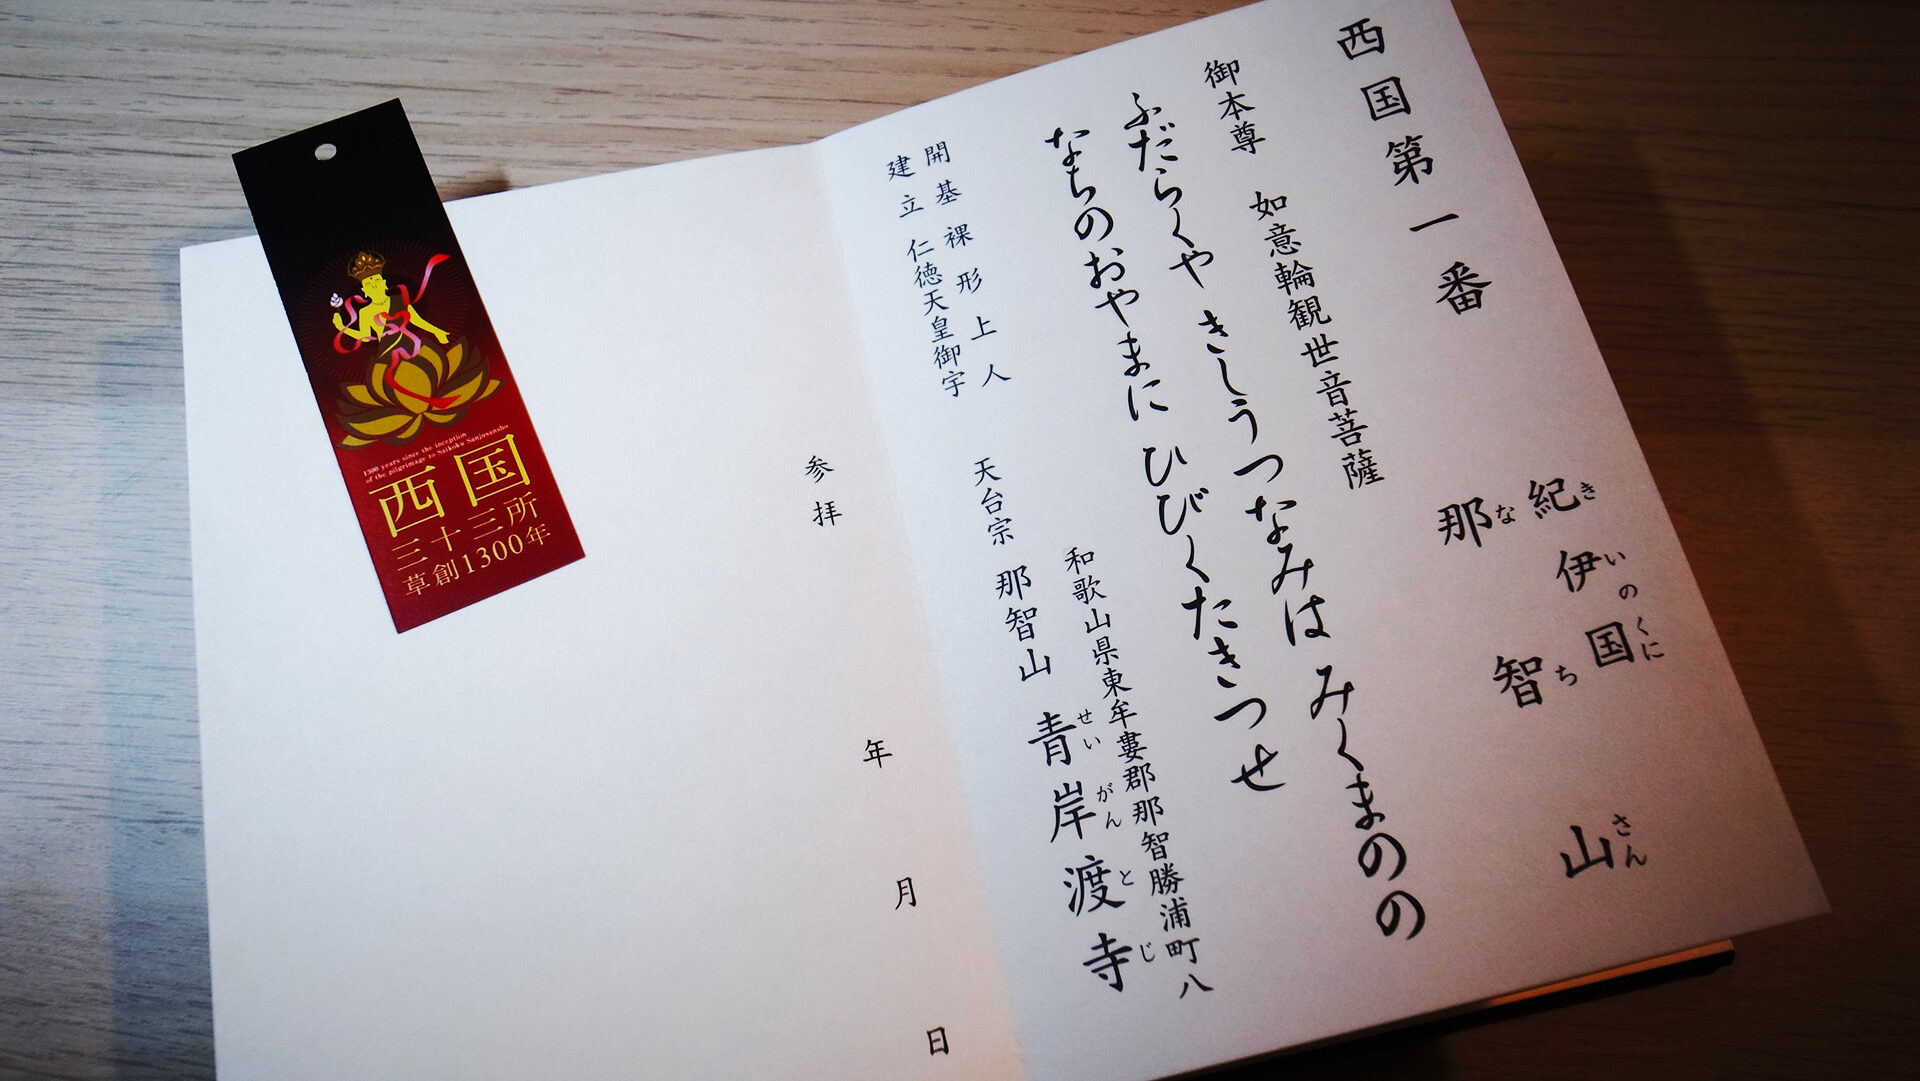 西国第一番
紀伊国
きいのくに
那智山
なちさん
御本尊 如意輪観世音菩薩
ふだらくや きしうつなみは みくまのの
なちのおやまに ひびくたきつせ
開基 裸形上人
建立 仁徳天皇御宇
和歌山県東牟婁郡那智勝浦町八
天台宗 那智山 青岸渡寺
せいがんとじ
参拝 年 月 日
1300 years since the inception
of the pilgrimage to Saikoku Sanjusansho
西国
三十三所
草創1300年